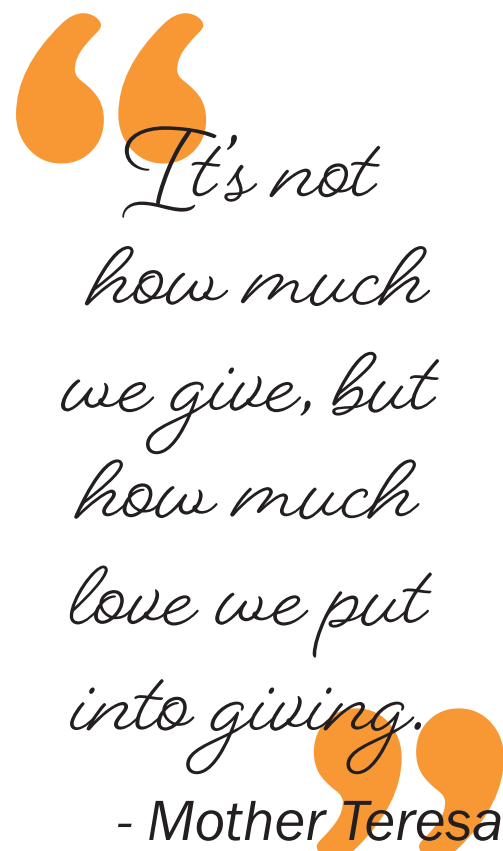 It's not
how much
we give, but
how much
love we put
into giving.
- Mother Teresa